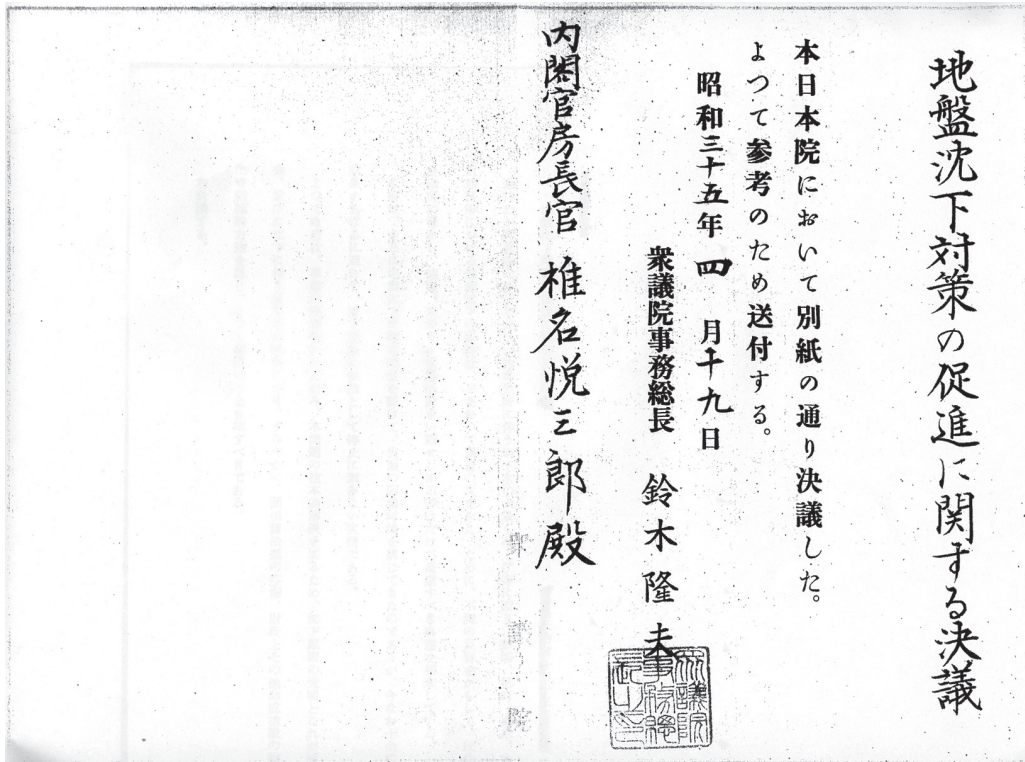 地盤沈下対策の促進に関する決議
本日本院において別紙の通り決議した。
よつて参考のため送付する。
昭和三十五年四月十九日
衆議院事務総長　鈴木隆夫
衆議院事務総長之印
内閣官房長官　椎名悦三郎殿
衆議院